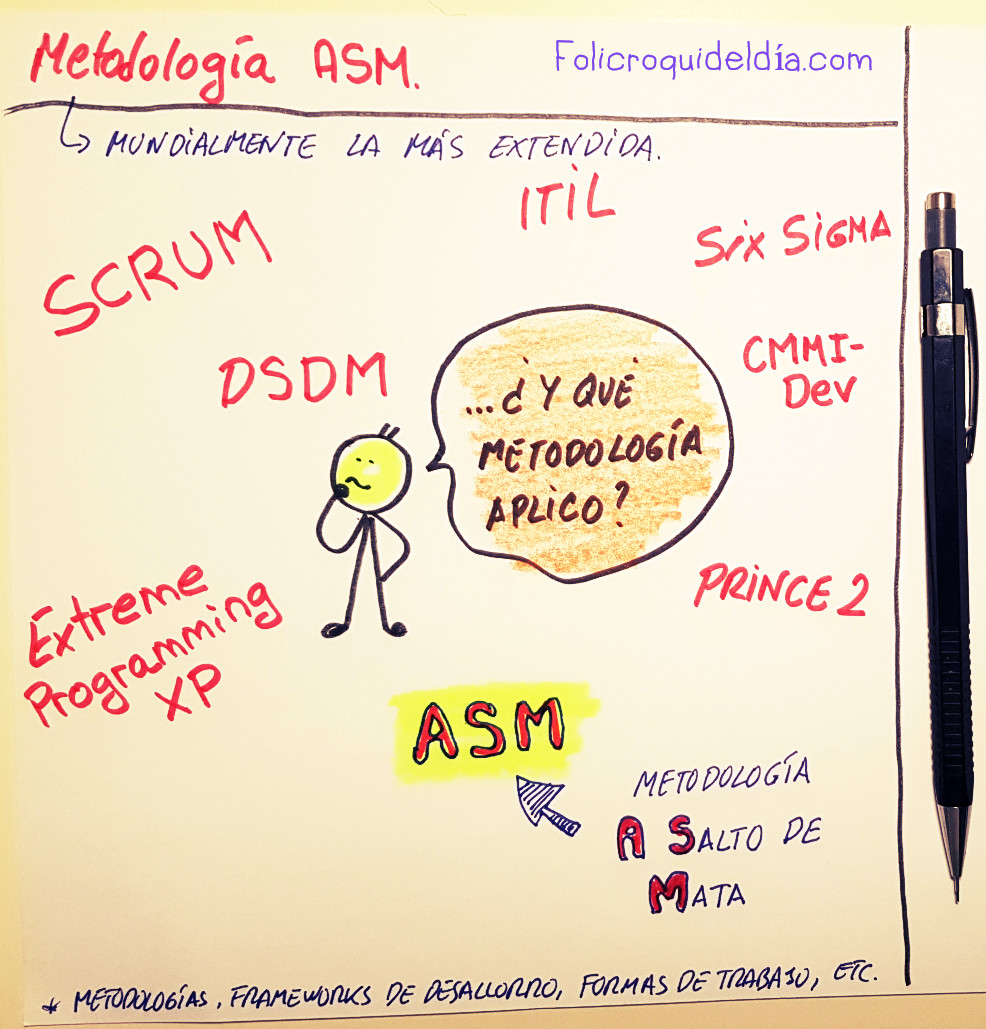 Metodología ASM.
Folicroquideldía.com
MUNDIALMENTE LA MÁS EXTENDIDA.
ITIL
SCRUM
Six SiGMA
DSDM
CMMI-
Dev
...¿Y QUÉ
METODOLOGÍA
APLICO?
PRINCE 2
Extreme
Programming
XP
ASM
METODOLOGÍA
A SALTO DE
MATA
* METODOLOGÍAS, FRAMEWORKS DE DESALLORRO, FORMAS DE TRABAJO, ETC.